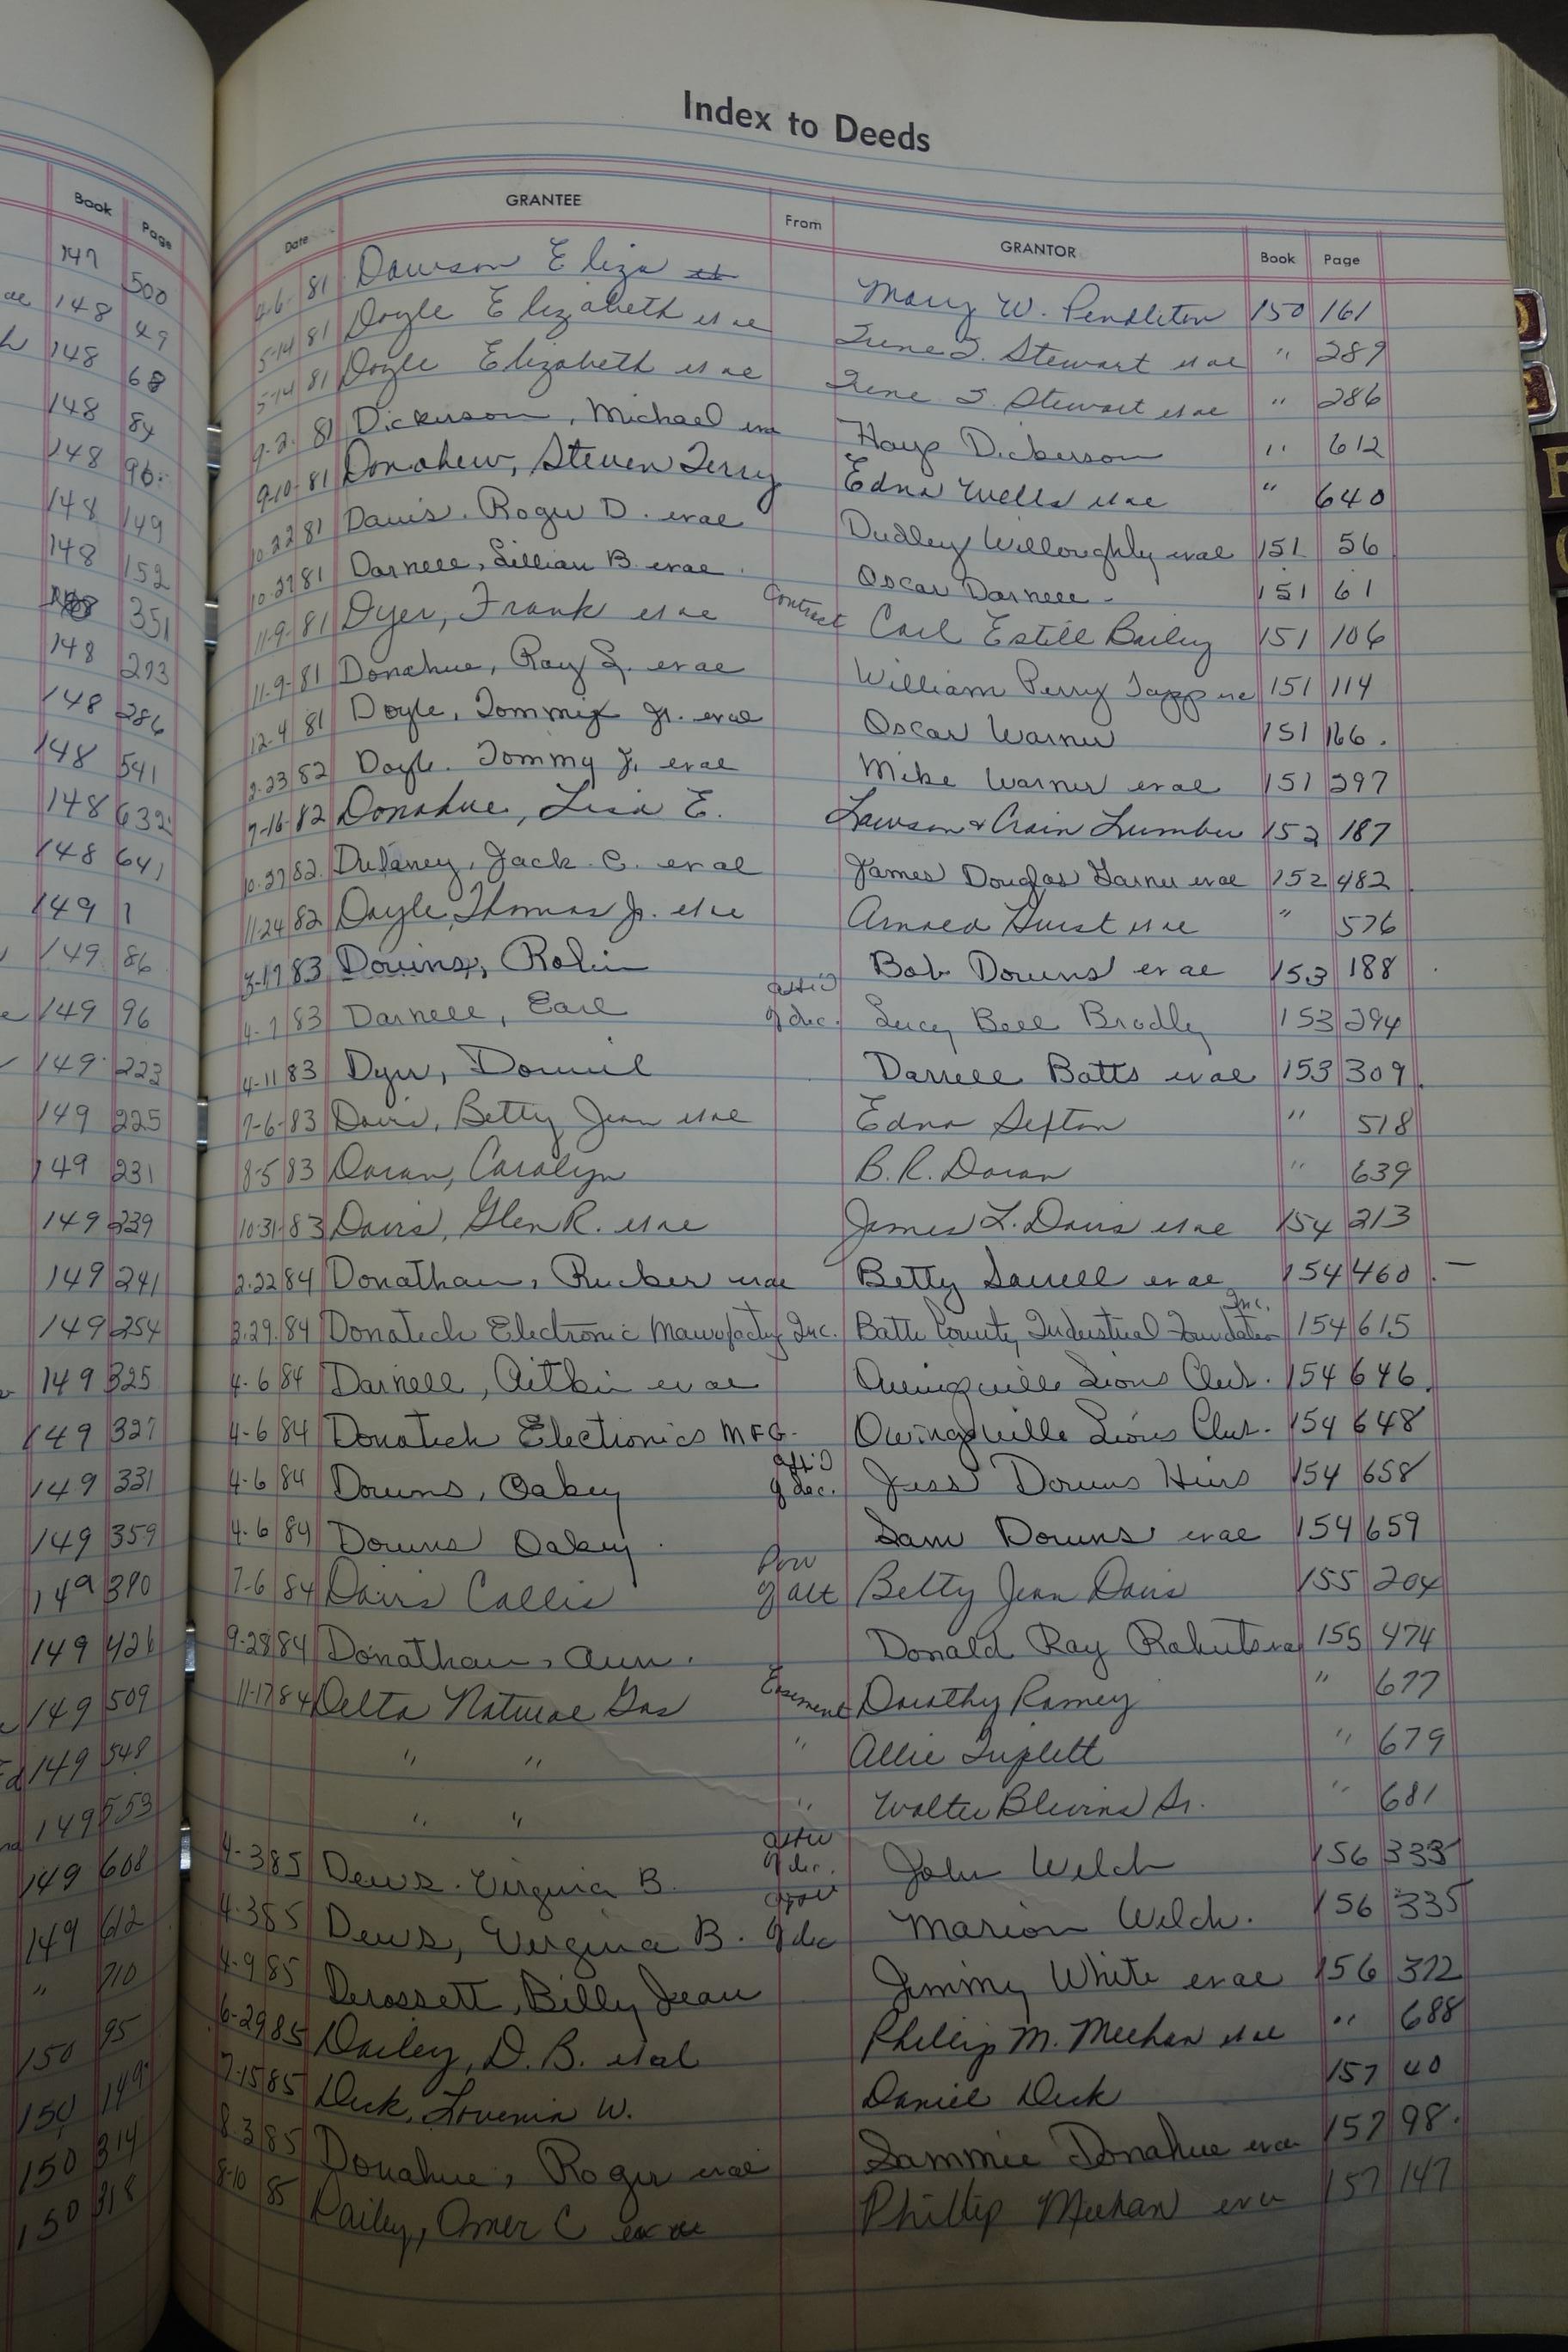 Index to Deeds
Book Page
147 500
148 49
148 68
148 84
148 96
148 149
148 152
351
148 273
148 286
148 541
148 632
148 641
149 1
149 86
149 96
149 223
149 225
149 231
149 239
149 241
149 254
149 325
149 327
149 331
149 359
149 390
149 426
149 509
149 548
149 553
149 608
149 612
" 710
150 95
150 149
150 314
150 318
Date GRANTEE From GRANTOR Book Page
81 Dawson Eliza Mary W. Pendleton 150 161
5-14 81 Doyle Elizabeth et al Irene T. Stewart et al " 289
5-14 81 Doyle Elizabeth et al Irene T. Stewart et al " 286
9-2- 81 Dickerson, Michael Dickerson " 612
9-10- 81 Donahew, Steven Terry Edna Wells et al " 640
10-22 81 Davis. Roger D. et al Dudley Willoughby et al 151 56
10-27 81 Darnell, Lillian B. et al Oscar Darnell 151 61
11-9- 81 Dyer, Frank et al Contract Carl Estill Bailey 151 106
11-9- 81 Donahue, Ray L. et al William Perry Tapp 151 114
12-4 81 Doyle, Tommy Jr. et al Oscar Warner 151 166
2-23 82 Doyle. Tommy Jr. et al Mike Warner et al 151 297
7-16- 82 Donahue, Lisa E. Lawson & Crain Lumber 152 187
10-27 82 Dulaney, Jack C. et al James Douglas Garner et al 152 482
11-24 82 Doyle, Thomas Jr. et al Arnold Hurst et al " 576
3-17 83 Downs, Robin Bob Downs et al 153 188
4-7 83 Darnell, Earl affid of dec. Lucy Bell Bradley 153 294
4-11 83 Dyer, Darrell Batts et al 153 309
7-6- 83 Davis, Betty Jean et al Edna Sexton " 518
8-5 83 Doran, Carolyn B. R. Doran " 639
10-31- 83 Davis, Glen R. et al James L. Davis et al 154 213
2-22 84 Donathan, Rucker et al Betty Sorrell et al 154 460
3-29. 84 Donatech Electronic Manufacturing Inc. Bath County Industrial Foundation Inc. 154 615
4-6 84 Darnell, Aitkin et al Owingsville Lions Club. 154 646
4-6 84 Donatech Electronics MFG. Owingsville Lions Club. 154 648
4-6 84 Downs, Oakey affid of dec. Jess Downs Heirs 154 658
4-6 84 Downs Oakey Sam Downs et al 154 659
7-6 84 Davis Callis Pow of att Betty Jean Davis 155 204
9-28 84 Donathan, Ann. Donald Ray 155 474
11-17 84 Delta Natural Gas Easement Dorothy Ramey " 677
" " " Allie Triplett " 679
" " " Walter Blevins Sr. " 681
4-3 85 Dews. Virginia B. of dec. John Welch 156 333
4-3 85 Dews, Virginia B. of dec Marion Welch. 156 335
4-9 85 Derossett, Billy Jean Jimmy White et al 156 372
6-29 85 Dailey, D. B. et al Phillip M. Meehan et al " 688
7-15 85 Deck, Lovenia W. Daniel Deck 157 40
8-3 85 Donahue, Roger et al Sammie Donahue et al 157 98.
8-10 85 Dailey, Omer C Phillip Meehan 157 147